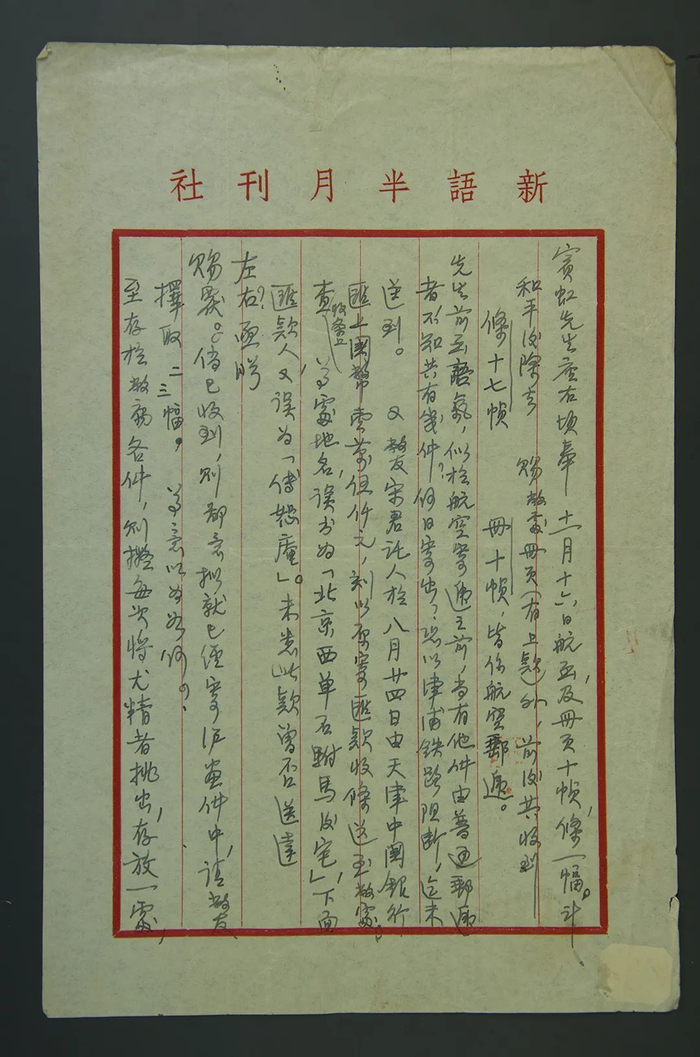 新語半月刊社
賓虹先生座右頃奉 十一月十六日航函及冊頁十幀，條一幅。計
和平後除去 賜敝處冊頁（有上款）外，前後共收到
條十七幀 冊十幀，皆係航空郵遞。
先生前函語氣，似於航空寄遞之前，尚有他件由普通郵遞
者不知共有幾件？何日寄出？恐以津浦鉄路阻斷，迄未
送到。 又敝友宋君託人於八月廿四日由天津中國銀行
匯上國幣壹萬伍仟元，刻以原寄匯款收條送至敝處，
查收條上 尊處地名，誤書為「北京西單石駙馬後宅」，下面
匯款人又誤為「傅怒庵」。未悉此款曾否送達
左右？函盼
賜覆。倘已收到，則鄙意擬就已經寄滬畫件中，請敝友
擇取二三幅。 尊意以為如何？
至存於敝寓各件，則擬每次將尤精者挑出，存放一處，